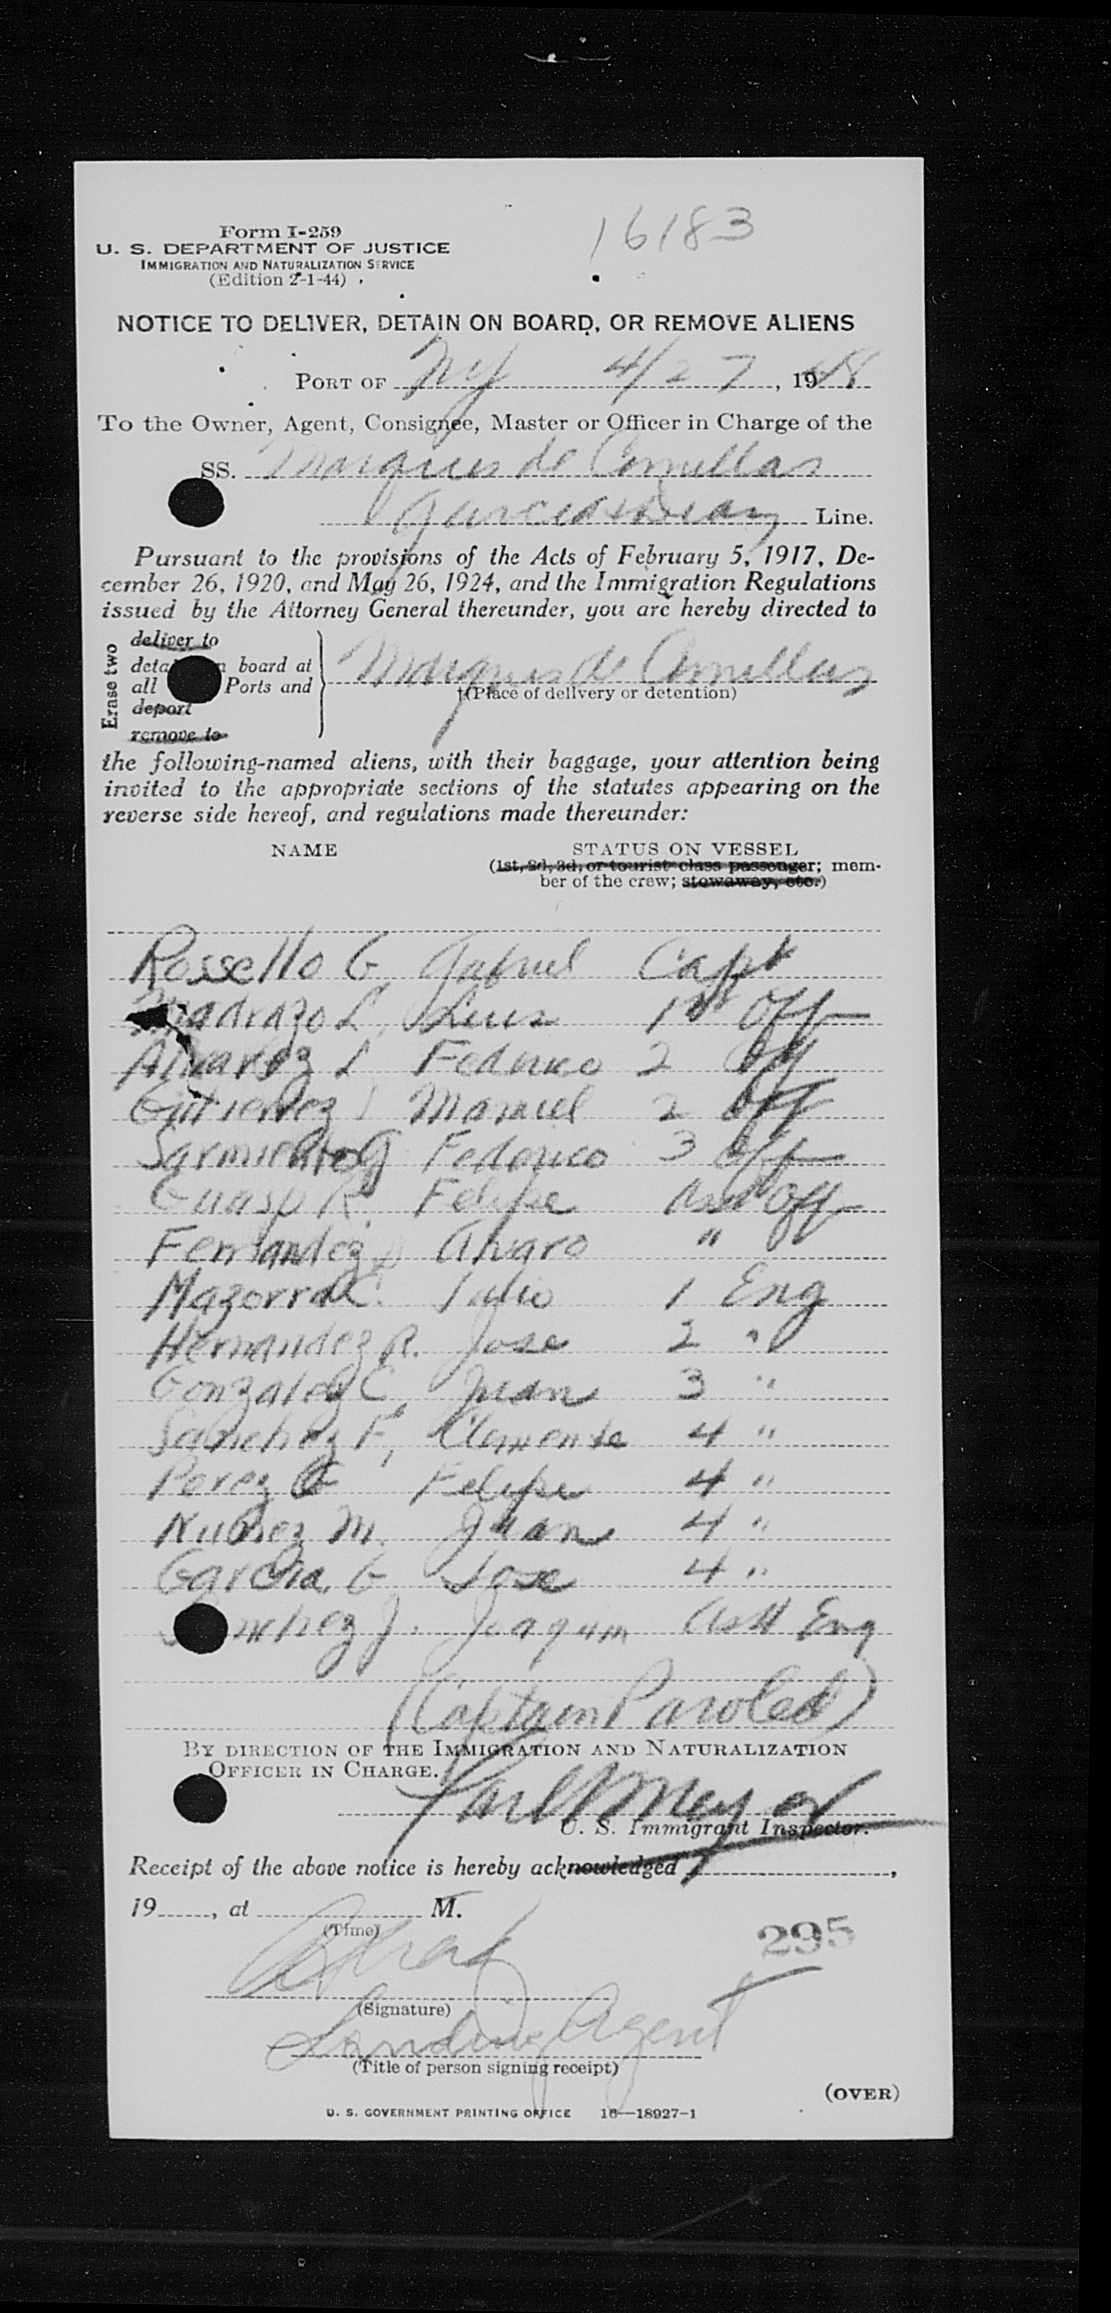 16183
Form I-259
U. S. DEPARTMENT OF JUSTICE
IMMIGRATION AND NATURALIZATION SERVICE
(Edition 2-1-44)
NOTICE TO DELIVER, DETAIN ON BOARD, OR REMOVE ALIENS
PORT OF NY 4/27, 1948
To the Owner, Agent, Consignee, Master or Officer in Charge of the
SS. Marques de Comillas
Garcia & Diaz Line.
Pursuant to the provisions of the Acts of February 5, 1917, De-
cember 26, 1920, and May 26, 1924, and the Immigration Regulations
issued by the Attorney General thereunder, you are hereby directed to
Erase two
deliver to
board at
all Ports and
deport
remove to
Marques de Comillas
†(Place of delivery or detention)
the following-named aliens, with their baggage, your attention being
invited to the appropriate sections of the statutes appearing on the
reverse side hereof, and regulations made thereunder:
NAME STATUS ON VESSEL
(1st, 2d, 3d, or tourist class passenger; mem-
ber of the crew; stowaway, etc.)
Rossello G Gabriel Capt
Madrazo L, Luis 1st Off
Alvarez Federico 2 Off
Gutierrez Manuel 2 Off
Sarmiento G Federico 3 Off
Guasp R. Felipe Asst Off
Fernandez Alvaro "
Mazorra C. Julio 1 Eng
Hernandez R. Jose 2 "
Gonzalez C, Juan 3 "
Sanchez F, Clemente 4 "
Perez G Felipe 4 "
Nunez M. Juan 4 "
Garcia, G Jose 4 "
nchez J. Joaquin Asst Eng
(Captain Paroled)
BY DIRECTION OF THE IMMIGRATION AND NATURALIZATION
OFFICER IN CHARGE.
U. S. Immigrant Inspector.
Receipt of the above notice is hereby acknowledged ,
19 , at M.
(Time)
295
(Signature)
Landing Agent
(Title of person signing receipt)
(OVER)
U. S. GOVERNMENT PRINTING OFFICE 16—18927-1